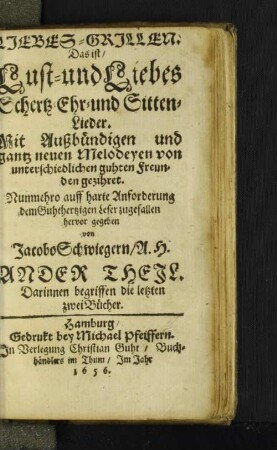 LIEBES-GRILLEN.
Das ist/
Lust-und Liebes
Schertz-Ehr-und Sitten-
Lieder.
Mit Außbündigen und
gantz neuen Melodeyen von
unterschiedlichen guhten Freun-
den gezihret.
Nunmehro auff harte Anforderung
dem Guhthertzigen Leser zugefallen
hervor gegeben
von
Jacobo Schwiegern/ A. H.
ANDER THEIL.
Darinnen begriffen die letzten
zwei Bücher.
Hamburg/
Gedrukt bey Michael Pfeiffern.
In Verlegung Christian Guht / Buch-
händlers im Thum/ Im Jahr
1656.